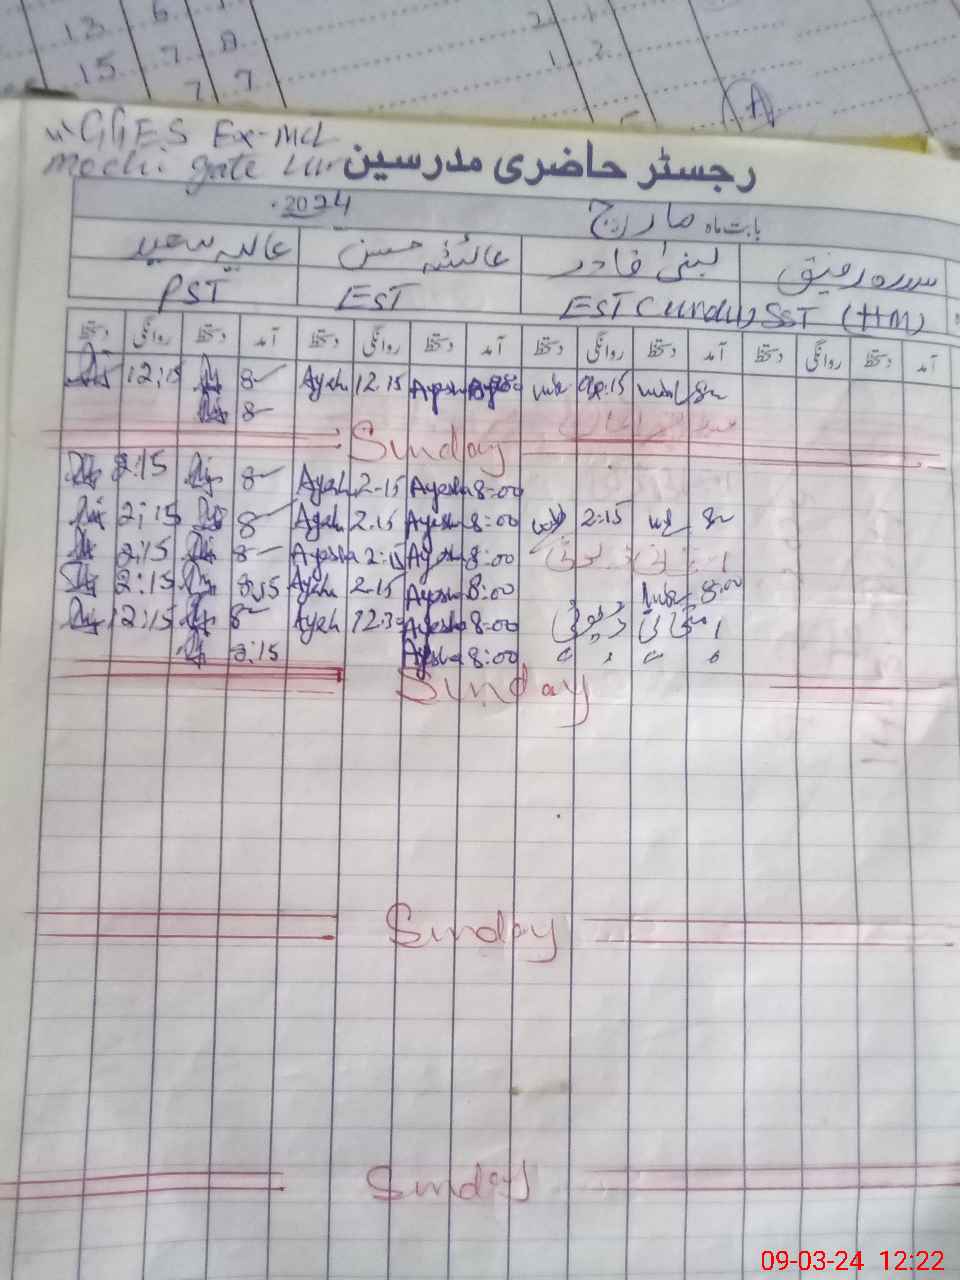 13 6
15 7 8
7 7
2 1
1 2
A
GGES Ex-MCL
Mochi gate Lhr رجسٹر حاضری مدرسین
بابت ماہ مارچ 2024
سدرہ رفیق لبنیٰ قادر عائشہ حسن عالیہ سعید
SST (HM) EST (urdu) EST PST
آمد دستخط روانگی دستخط آمد دستخط روانگی دستخط آمد دستخط روانگی دستخط آمد دستخط روانگی دستخط
12:15 8 Ayesh 12.15 Ayesha 8
8
Sunday
2:15 8 Ayesh 2.15 Ayesha 8:00
2:15 8 Ayesh 2.15 Ayesha 8:00 2:15 8
2:15 8 Ayesha 2:15 Ayesha 8:00
2:15 8:15 Ayesh 2.15 Ayesha 8:00 8:00
12:15 8 Ayesh 12:30 Ayesha 8:00 امتحانی ڈیوٹی
8:15 Ayesha 8:00
Sunday
Sunday
Sunday
09-03-24 12:22